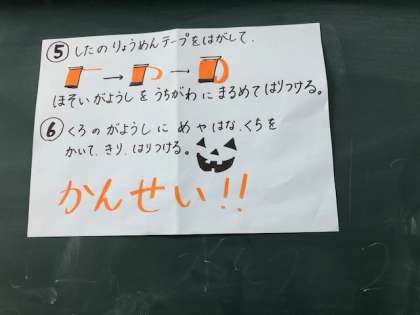 ⑤ したの りょうめんテープをはがして、
→ →
ほそいがようしを うちがわに まるめて はりつける。
⑥ くろの がようしに めやはな、くちを
かいて、きり、はりつける。
かんせい!!